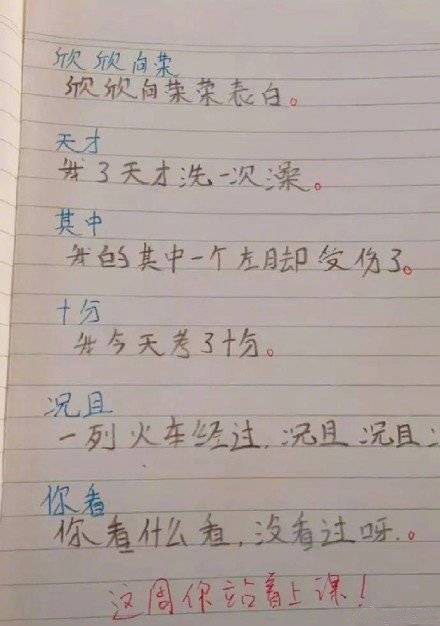 欣欣向荣
欣欣向荣荣表白。
天才
我3天才洗一次澡。
其中
我的其中一个左脚却受伤了。
十分
我今天考了十分。
况且
一列火车经过,况且况且
你看
你看什么看,没看过呀。
这周你站着上课!